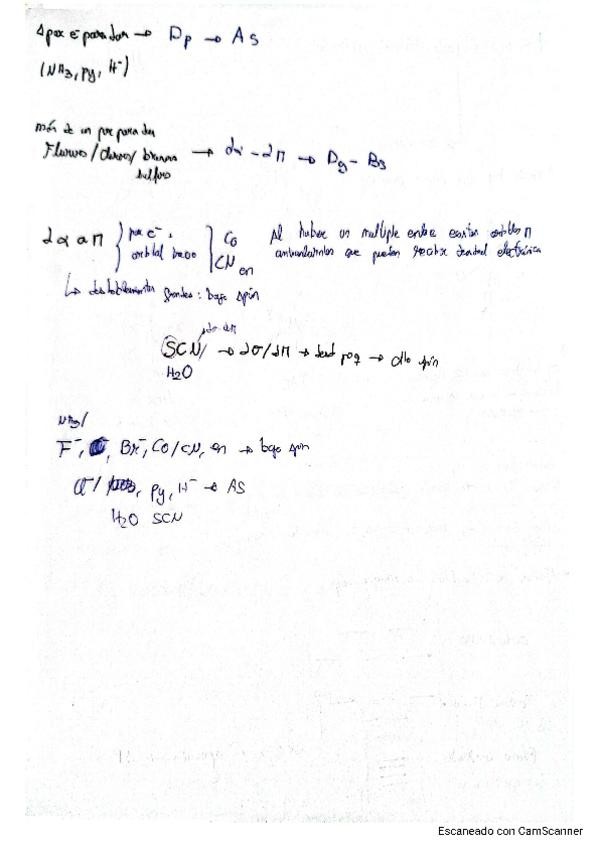 1 par e⁻ para dar → Dp → AS
(NH3, py, H⁻)
más de un par para dar
Fluoro/cloro/bromo → dσ - dπ → Dg - BS
sulfuro
dσ aπ } par e⁻ orbital vacio } CO CN en
Al haber un multiple enlace existen orbitales π
antienlazantes que pueden recibir densidad electrónica
↳ desdoblamientos grandes: bajo spin
SCN / → dσ/dπ → desd peq → alto spin
H2O
NH3/
F⁻, Br⁻, CO/CN, en → bajo spin
Cl⁻/ , py, H⁻ → AS
H2O SCN
Escaneado con CamScanner